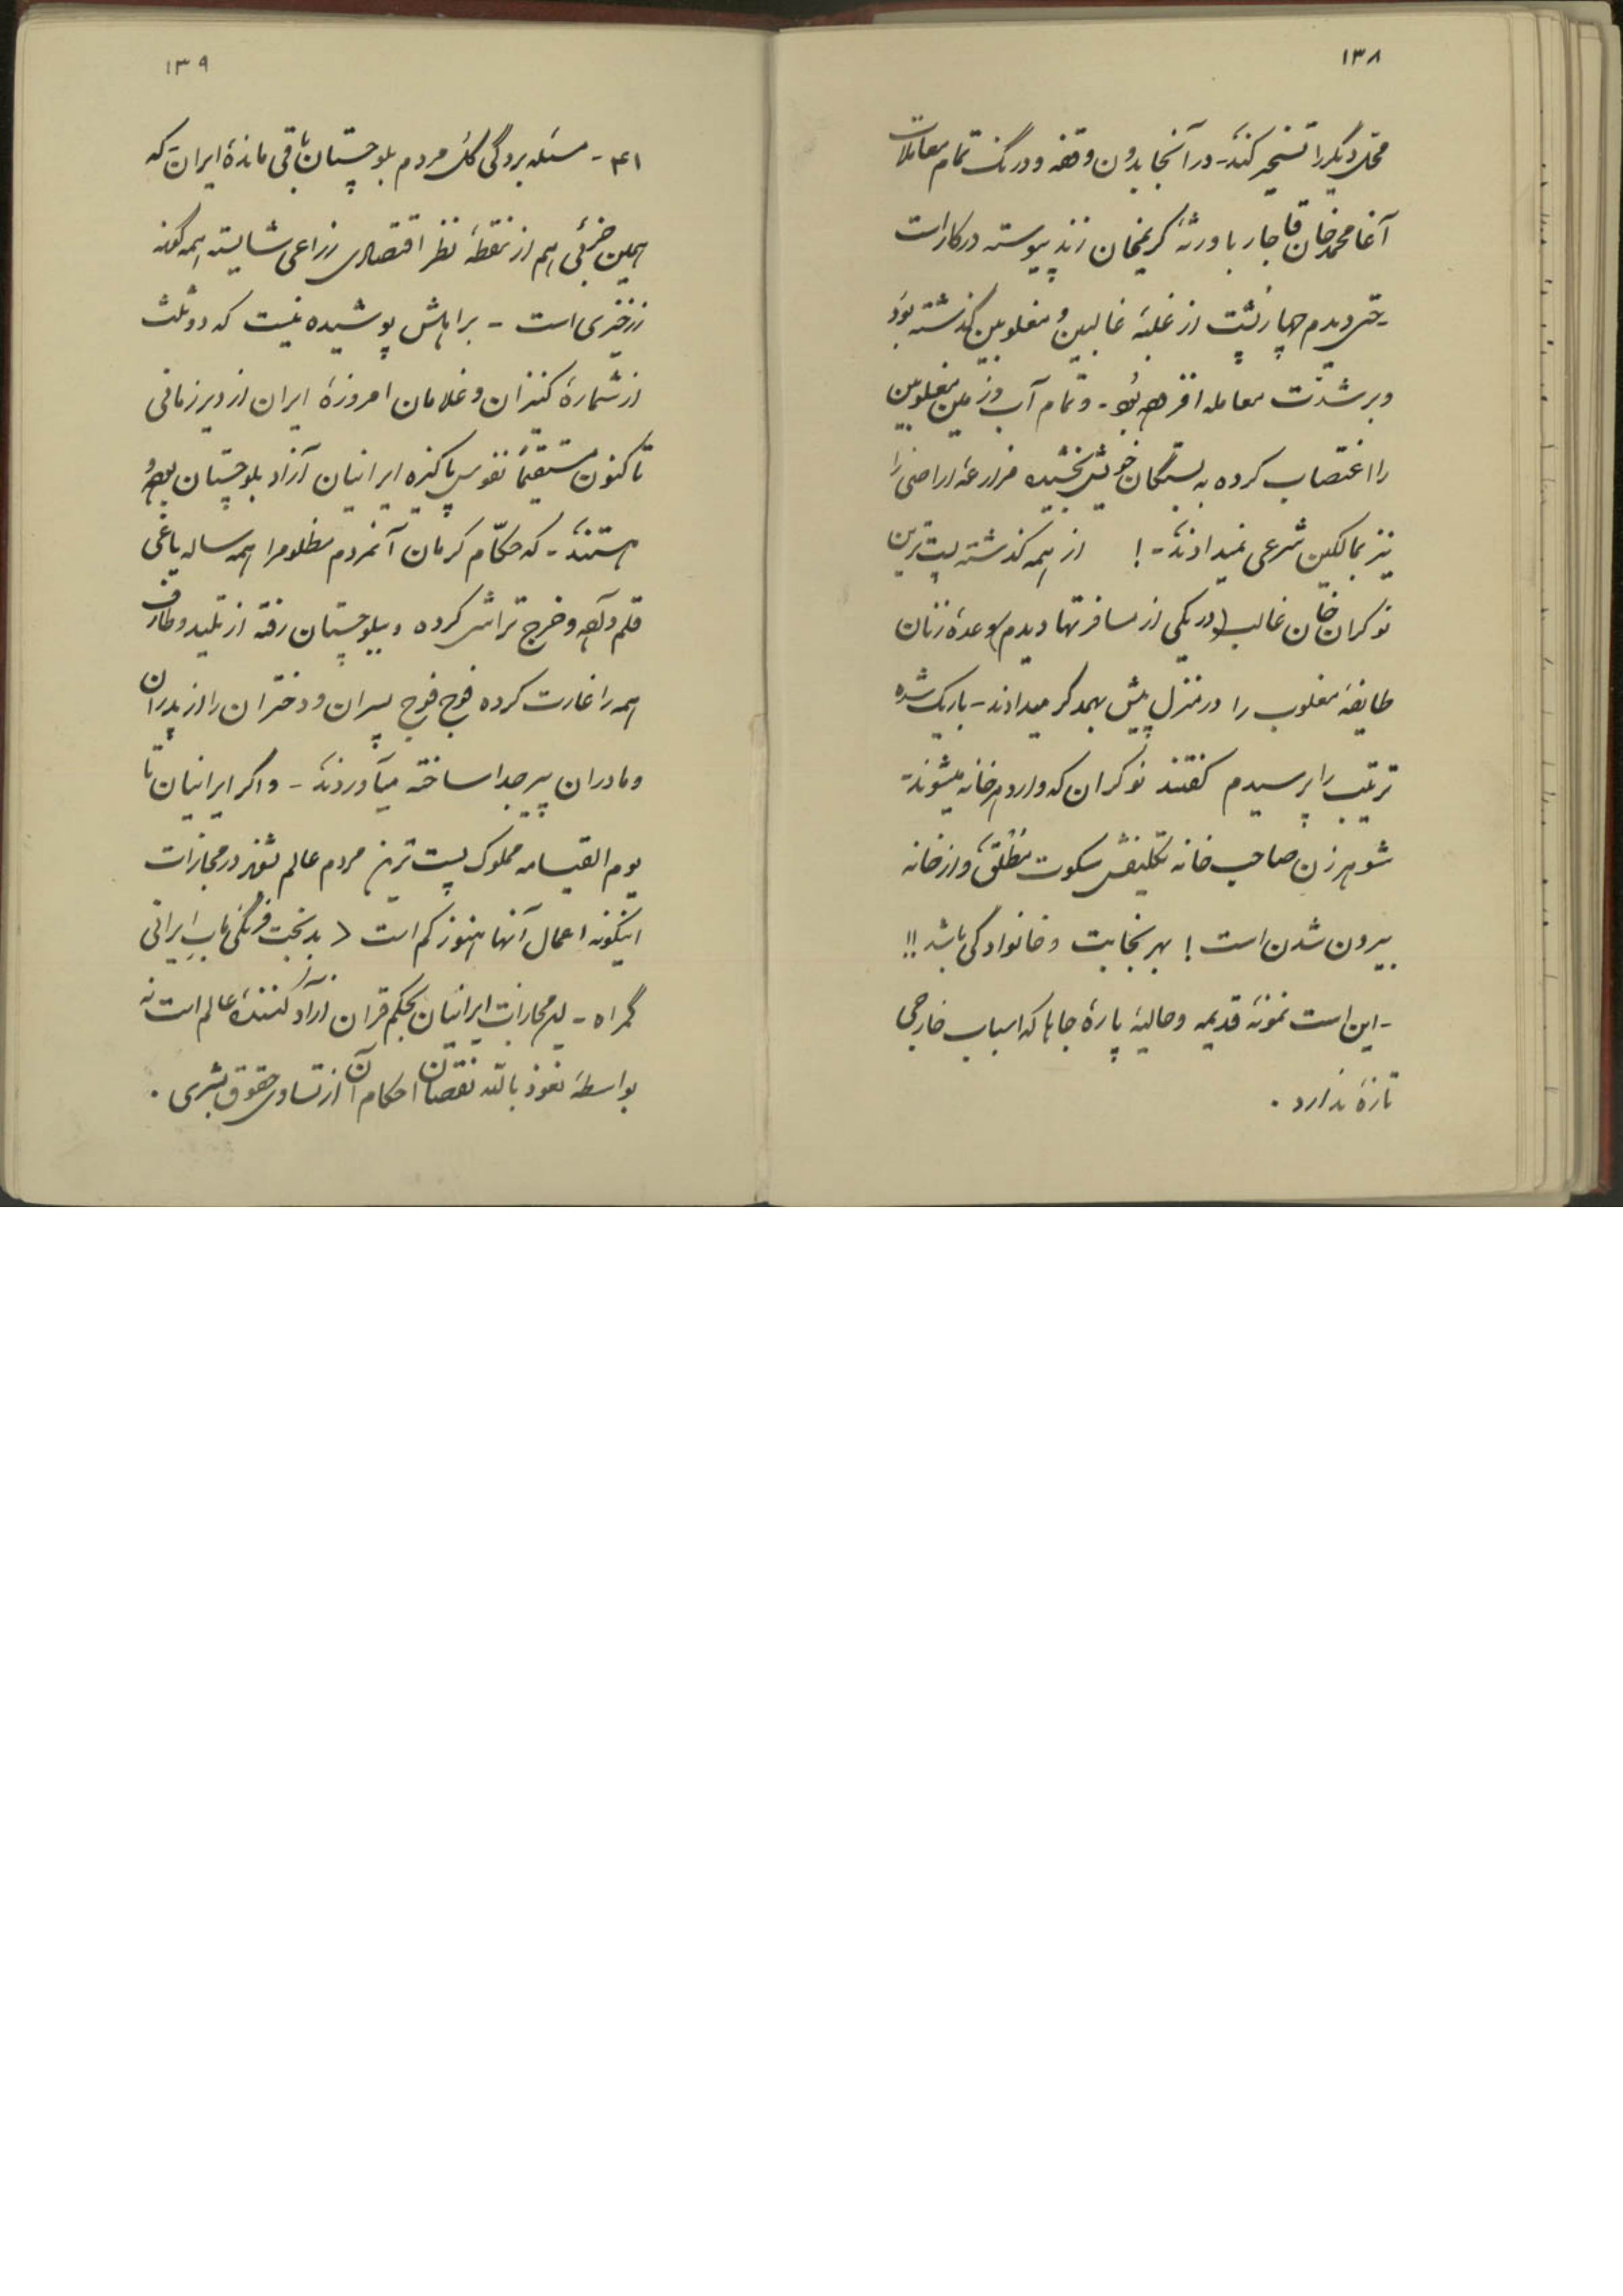 ۱۳۸
محل دیگر را تسخیر کنند - در آنجا بدون وقفه و درنگ تمام معاملات
آغا محمد خان قاجار با ورثهٔ کریمخان زند پیوسته در کار است
- حتی دیدم چهار پشت از غلبهٔ غالبین و مغلوبین گذشته بود
و بر شدت معامله افزوده بود - و تمام آب و زمین مغلوبین
را اغتصاب کرده به بستگان خویش بخشیده مزارعهٔ اراضی را
نیز بمالکین شرعی نمیدادند - ! از همه گذشته پست ترین
نوکران خان غالب (در یکی از مسافرتها دیدم) وعدهٔ زنان
طایفهٔ مغلوب را در منزل پیش بهمدگر میدادند - باریک شده
ترتیب را پرسیدم گفتند نوکران که وارد هر خانه میشوند -
شوهر زن صاحب خانه تکلیفش سکوت مطلق و از خانه
بیرون شدن است ! بهر نجابت و خانوادگی باشد !!
- این است نمونهٔ قدیمه و حالیهٔ پارهٔ جاها که اسباب خارجی
تازهٔ ندارد .
۱۳۹
۴۱ - مسئله بردگی کل مردم بلوچستان باقی ماندهٔ ایران - که
همین جزئی هم از نقطهٔ نظر اقتصادی زراعی شایسته همه گونه
زرخیزی است - بر اهلش پوشیده نیست که دو ثلث
از شمارهٔ کنیزان و غلامان امروزهٔ ایران از دیر زمانی
تاکنون مستقیماً نفوس پاکیزه ایرانیان آزاد بلوچستان بوده و
هستند - که حکّام کرمان آنمردم مظلومرا همه ساله یاغی
قلم داده و خرج تراشی کرده و ببلوچستان رفته از تلید و طارف
همه را غارت کرده فوج فوج پسران و دختران را از پدران
و مادران پیر جدا ساخته میآوردند - و اگر ایرانیان تا
یوم القیامه مملوک پست ترین مردم عالم شوند در مجازات
اینگونه اعمال آنها هنوز کم است < بدبخت فرنگی مآب ایرانی
گمراه - مجازات ایرانیان بحکم قران آزاد کنندهٔ عالم است نه
بواسطهٔ نعوذ بالله نقصان احکام آن از تساوی حقوق بشری .